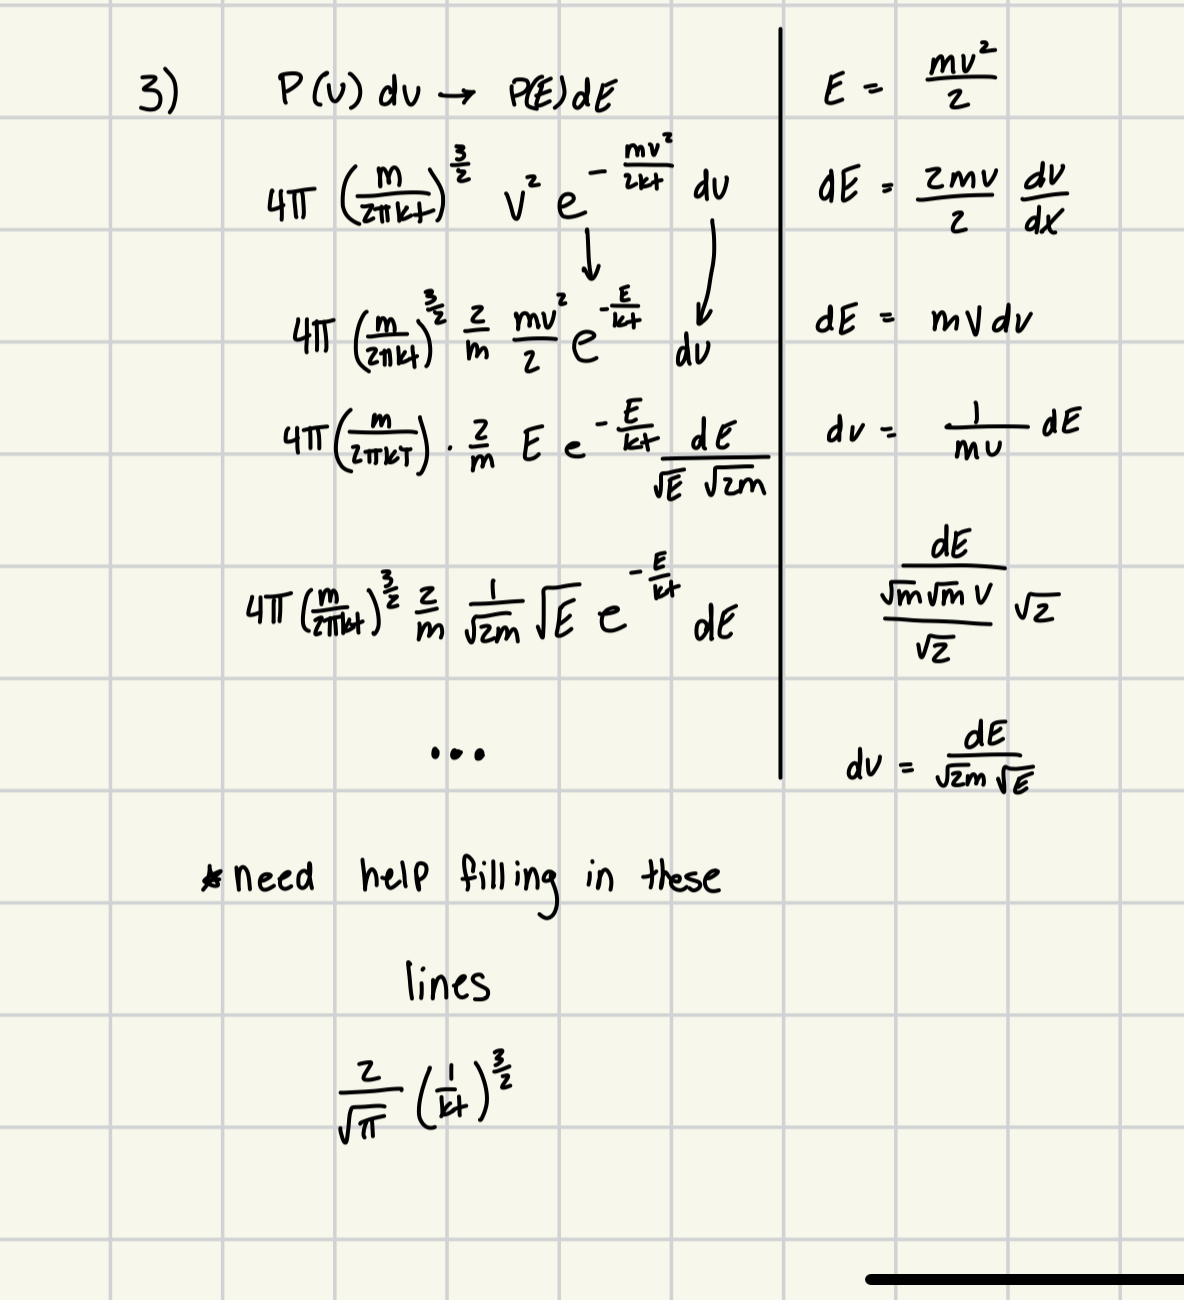 3) P(v) dv → P(E)dE
4π (m/2πkt)^3/2 v² e^-mv²/2kt dv
4π (m/2πkt)^3/2 2/m mv²/2 e^-E/kt dv
4π (m/2πkT) · 2/m E e^-E/kt dE/√E √2m
4π (m/2πkt)^3/2 2/m 1/√2m √E e^-E/kt dE
...
*need help filling in these
lines
2/√π (1/kt)^3/2
E = mv²/2
dE = 2mv/2 dv/dx
dE = mv dv
dv = 1/mv dE
dE/√m√m v/√2 √2
dv = dE/√2m √E